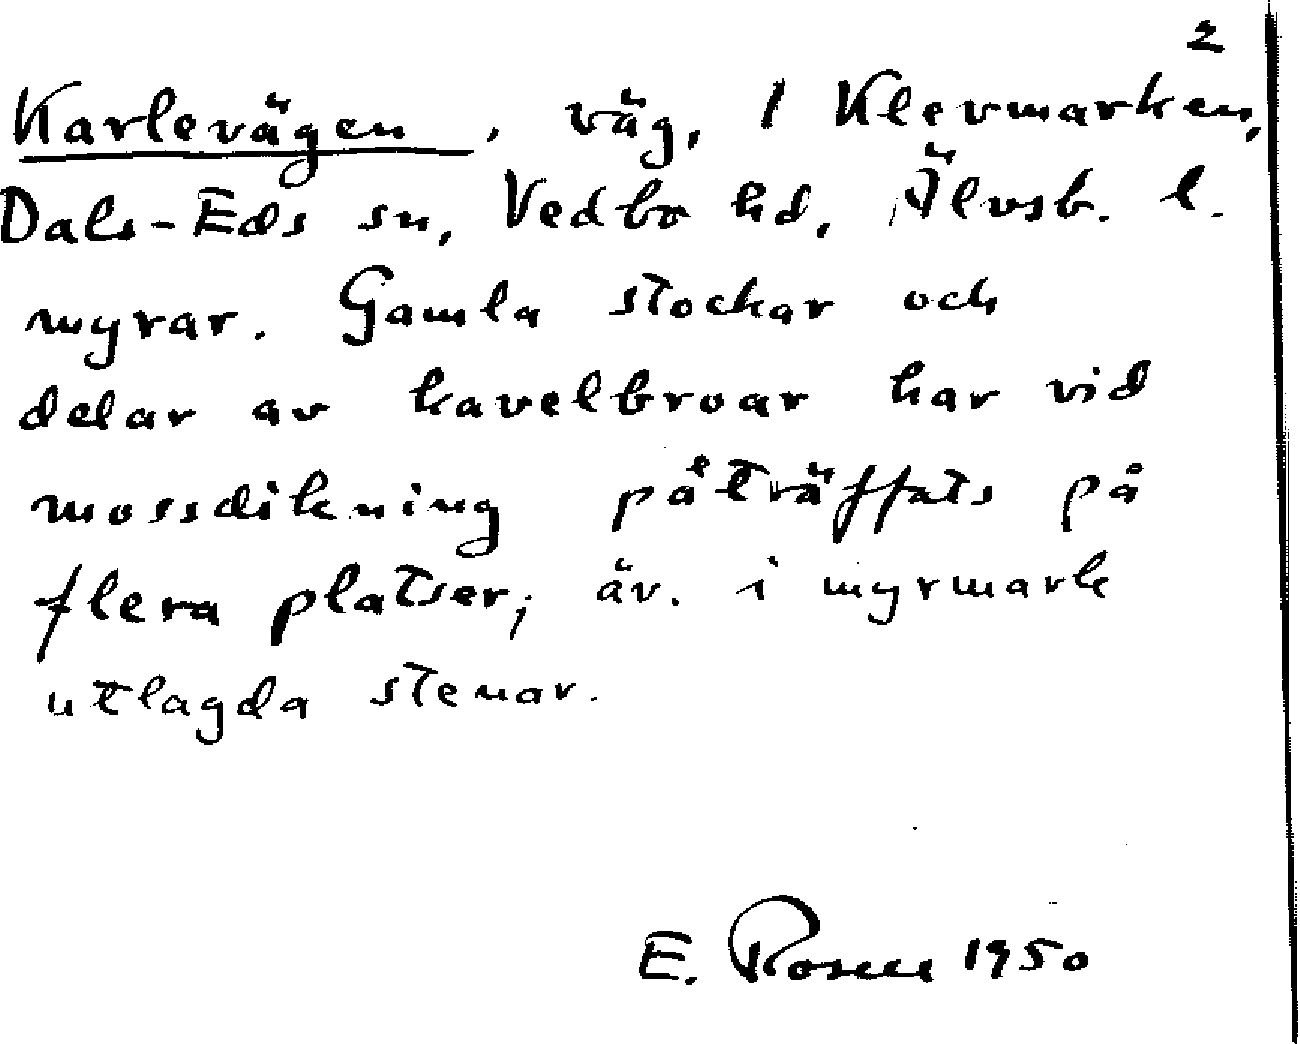 2
Karlevägen, väg, 1 Klevmarken,
Dals-Eds sn, Vedbo hd, Älvsb. l.
myrar. Gamla stockar och
delar av kavelbroar har vid
mossdikning påträffats på
flera platser; äv. i myrmark
utlagda stenar.
E. Rosen 1950